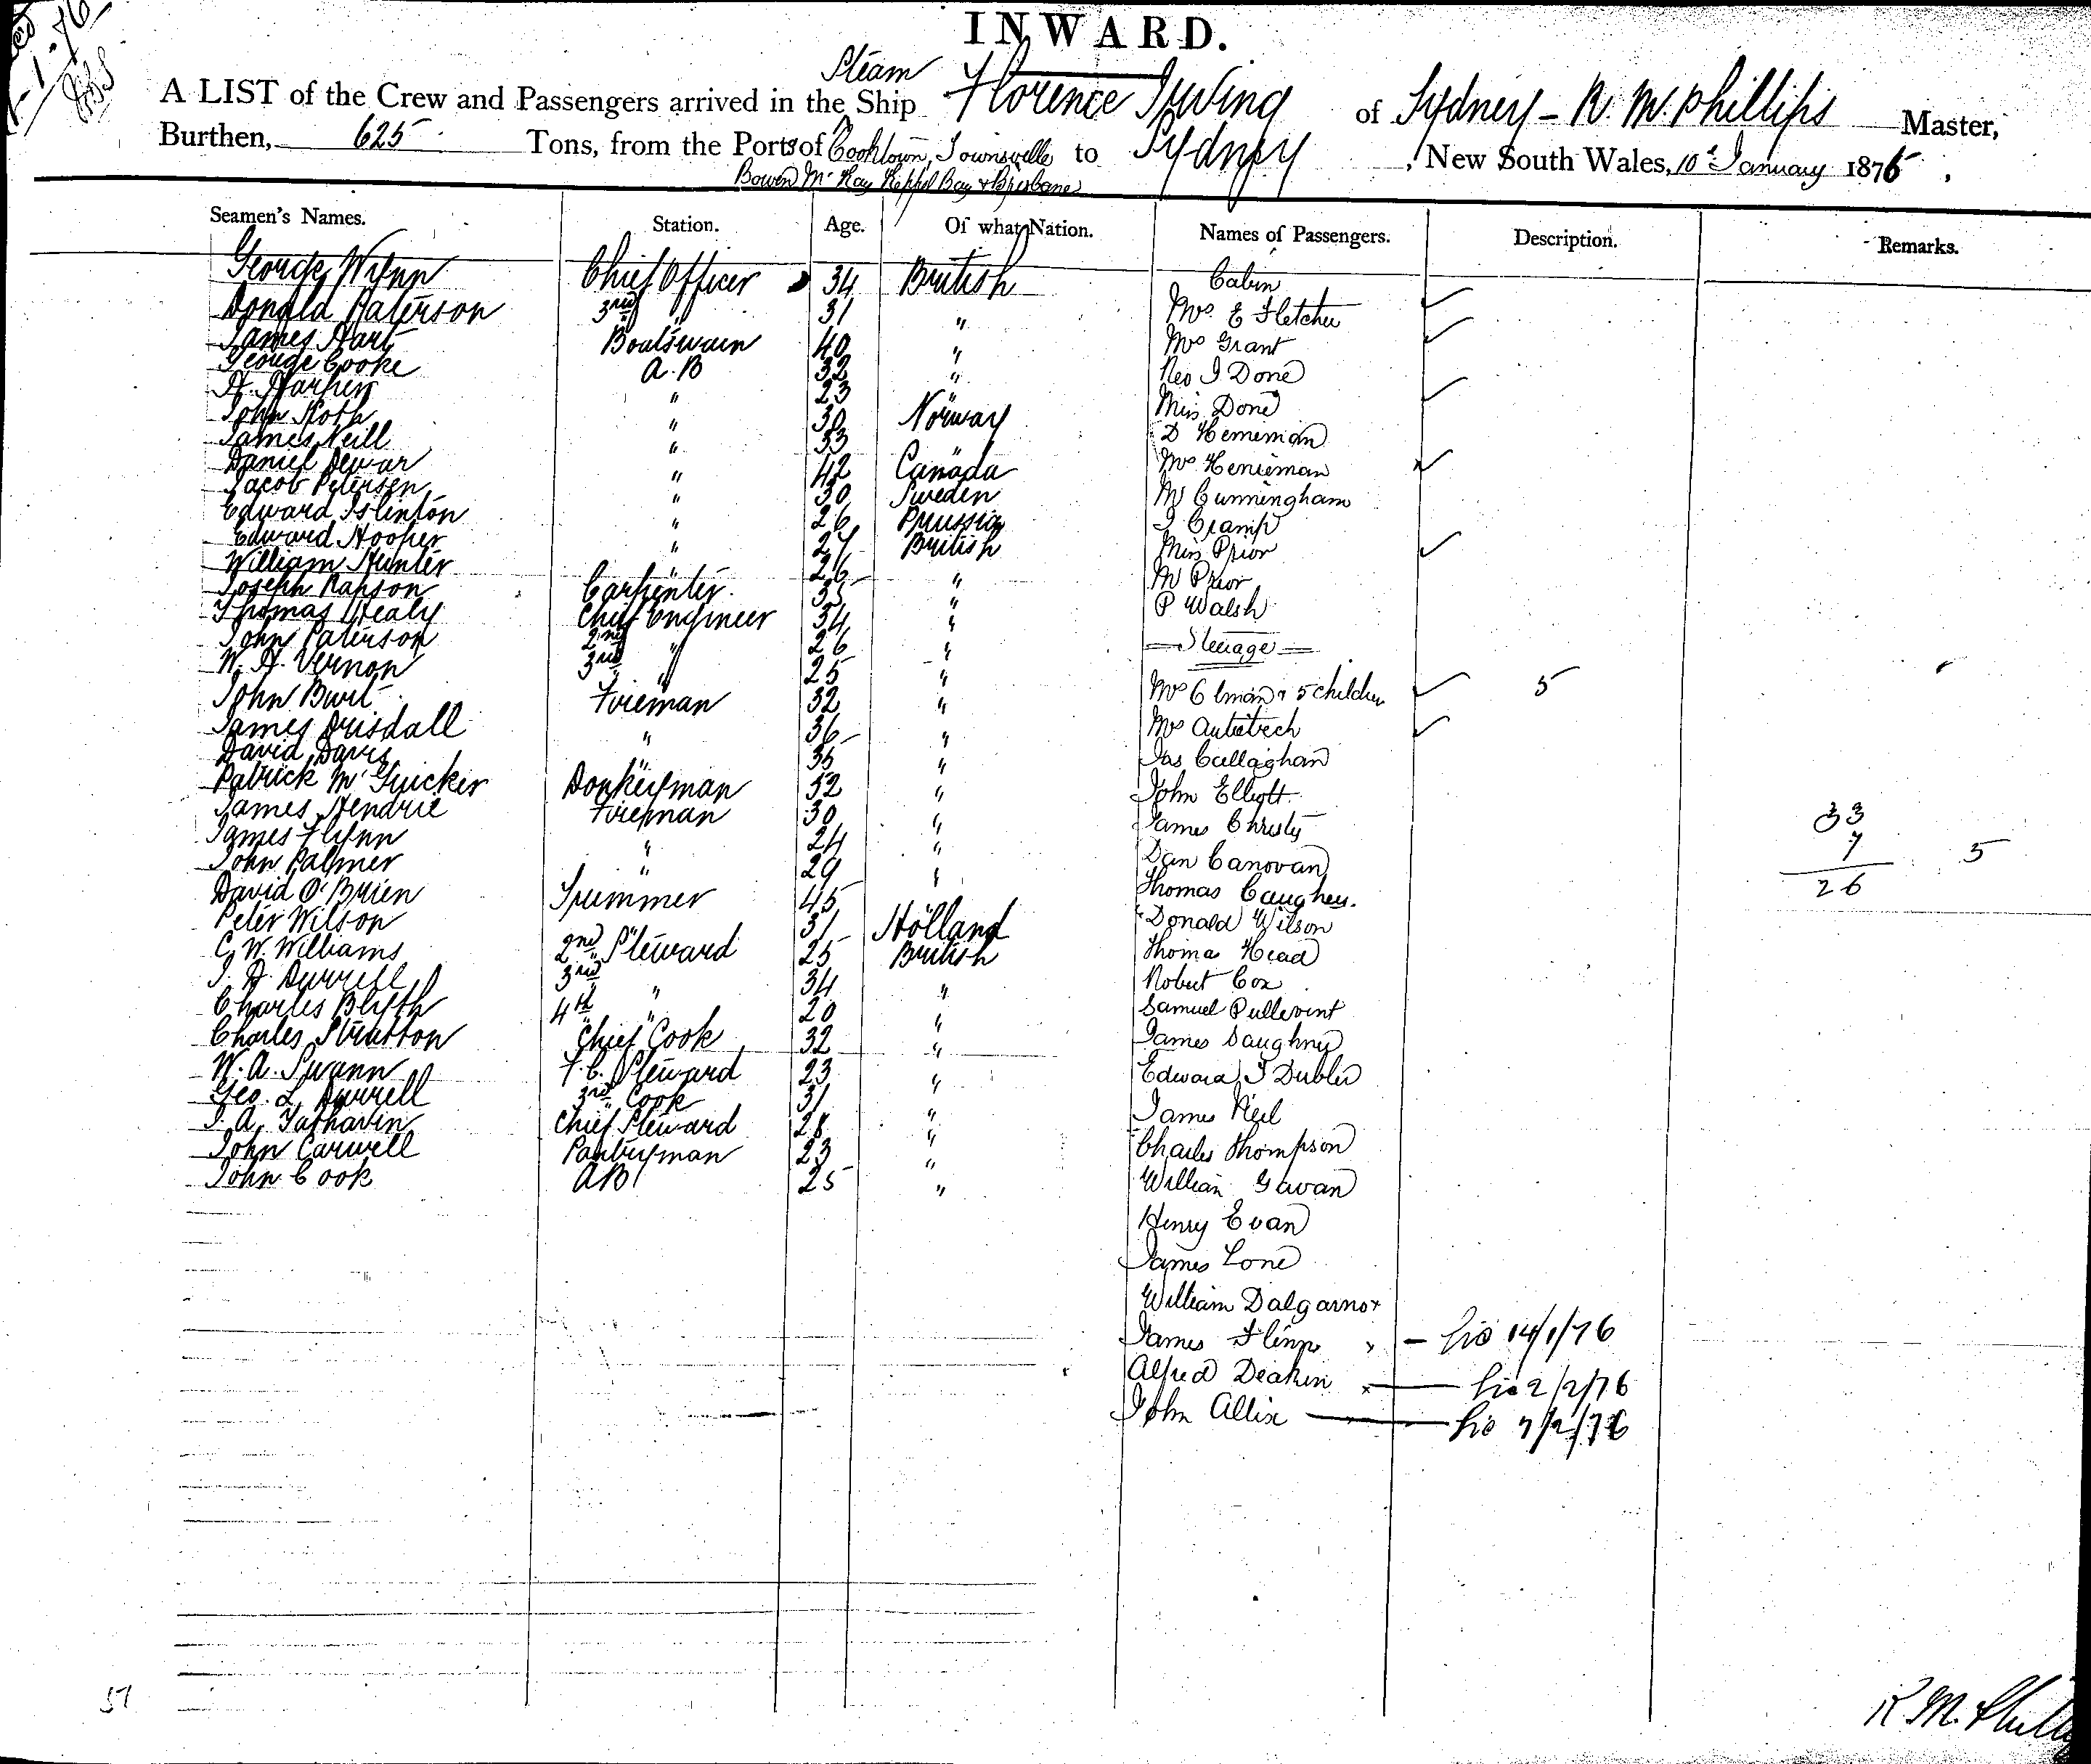 INWARD.
Steam
A LIST of the Crew and Passengers arrived in the Ship Florence Irving of Sydney - R. M. Phillips Master,
Burthen, 625 Tons, from the Ports of Cooktown, Townsville to Sydney, New South Wales, 10th January 1876,
Bowen McKay Keppel Bay & Brisbane
Seamen's Names. Station. Age. Of what Nation. Names of Passengers. Description. Remarks.
George Wynn Chief Officer 34 British Cabin
Donald Paterson 3rd " 31 " Mrs. E Fletcher
James Hart Boatswain 40 " Mrs Grant
George Cooke A.B 32 " Rev J. Done
H. Harper " 23 " Miss Done
John Roth " 30 Norway D Henieman
James Neill " 33 " Mrs Henieman
Daniel Dewar " 42 Canada M Cunningham
Jacob Petersen " 30 Sweden J Cramp
Edward Islenton " 26 Prussia Miss Prior
Edward Hooper " 27 British M Prior
William Hunter " 26 " P Walsh
Joseph Rapson Carpenter 35 " Steerage
Thomas Healy Chief Engineer 34 " Mrs Elman & 5 children 5
John Paterson 2nd " 26 " Mrs
W. H. Vernon 3rd " 25 " Jas Callaghan
John Burt Fireman 32 " John Elliott
James Drisdall " 36 " James Christy
David Davis " 35 " Dan Canovan
Patrick McGuicker Donkeyman 52 " Thomas Caughey.
James Hendrie Fireman 30 " Donald Wilson 33
James Flynn " 24 " Thomas Head 7 5
John Palmer " 29 " Robert Cox 26
David O'Brien Trimmer 45 " Samuel Pullevint
Peter Wilson " 31 Holland James Daughney
C. W. Williams 2nd Steward 25 British Edward J Dubler
J. H. Durrell 3rd " 34 " James Neil
Charles Blyth 4th " 20 " Charles Thompson
Charles Stratton Chief Cook 32 " William Gavan
W. A. Swann F.C. Steward 23 " Henry Evan
Geo. L. Durrell 3rd Cook 31 " James Lone
J. A. Chief Steward 28 " William Dalgarno x
John Carwell Pantryman 23 " James Flinn x - 14/1/76
John Cook AB 25 " Alfred Deakin x 2/2/76
John Allix 7/2/76
57
R M. Phill